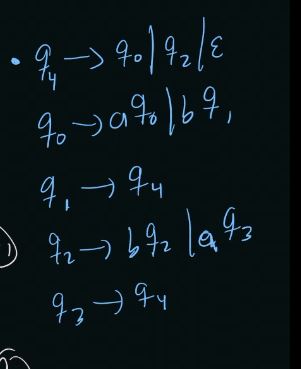 • q₄ → q₀ | q₂ | ε
q₀ → a q₀ | b q₁
q₁ → q₄
q₂ → b q₂ | a q₃
q₃ → q₄